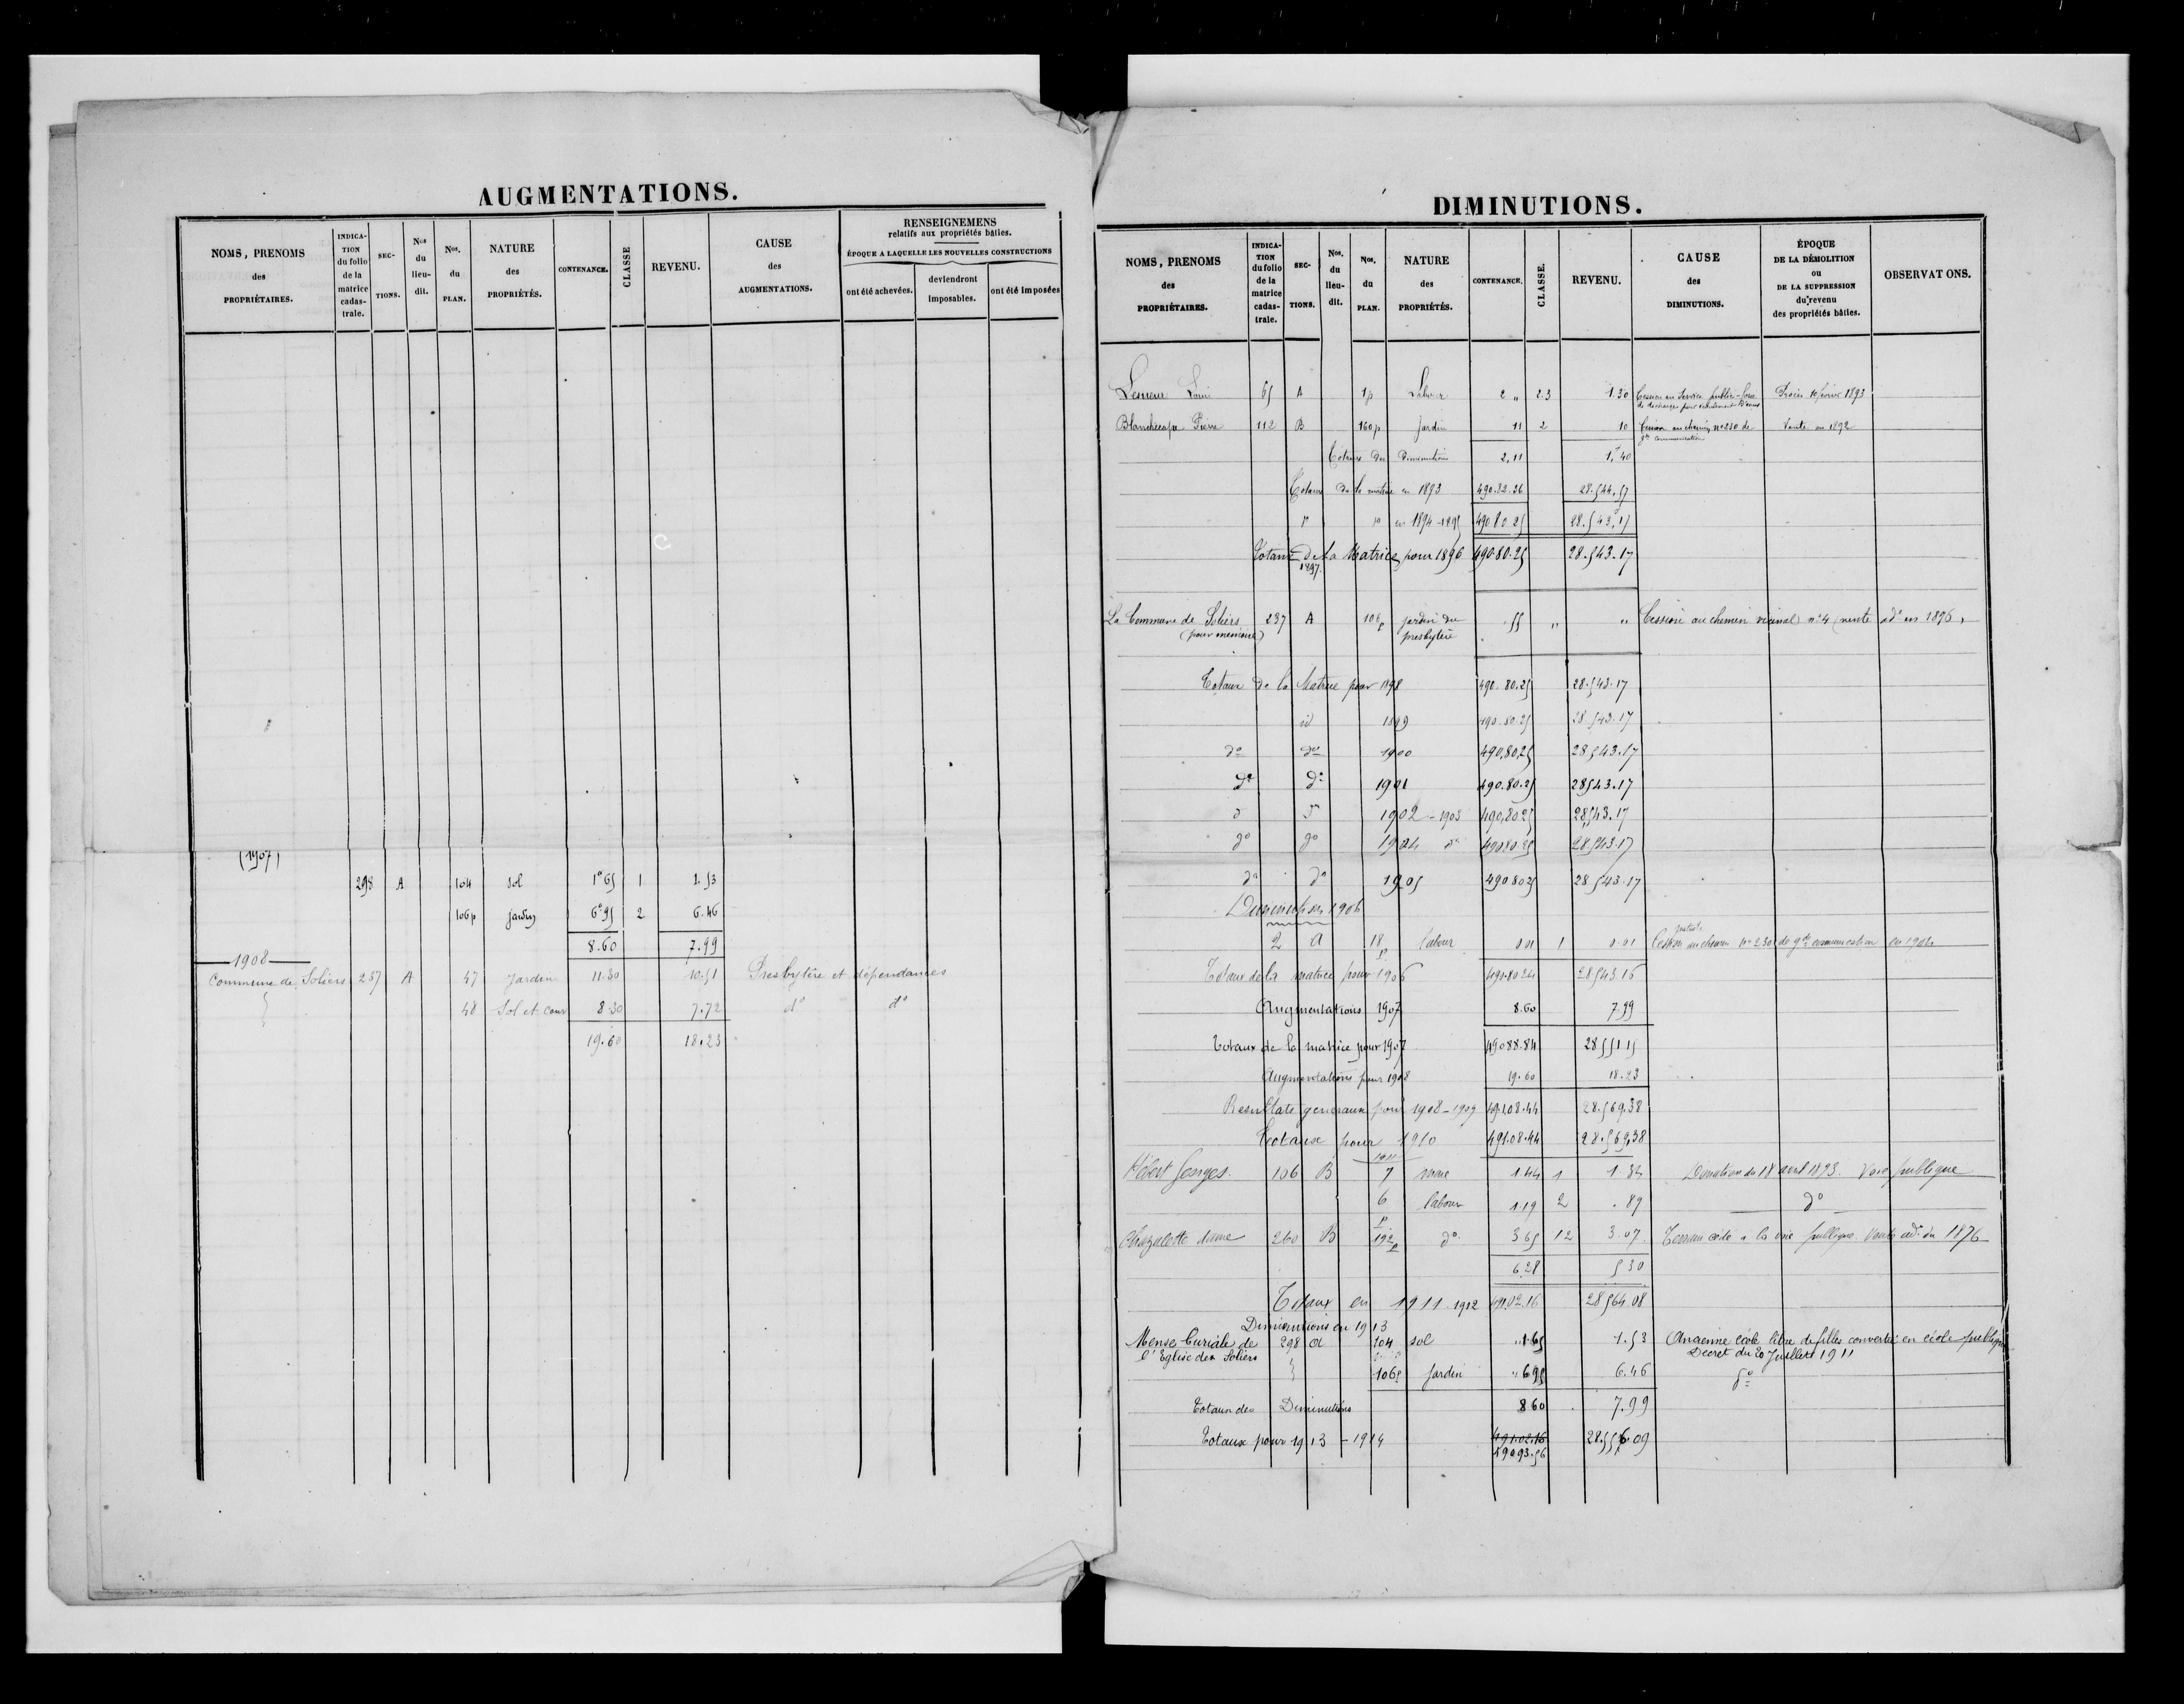 AUGMENTATIONS.
NOMS, PRENOMS des PROPRIÉTAIRES.
INDICATION du folio de la matrice cadastrale.
SECTIONS.
Nos du lieu-dit.
Nos. du PLAN.
NATURE des PROPRIÉTÉS.
CONTENANCE.
CLASSE
REVENU.
CAUSE des AUGMENTATIONS.
RENSEIGNEMENS relatifs aux propriétés bâties.
ÉPOQUE A LAQUELLE LES NOUVELLES CONSTRUCTIONS
ont été achevées.
deviendront imposables.
ont été imposées
(1907)
298 A 104 sol 1a 65 1 1.53
106p jardin 6a 95 2 6.46
8.60 7.99
1908
Commune de Soliers 237 A 47 Jardin 11.30 10.51 Presbytère et dépendances
48 Sol et cour 8.30 7.72 do do
19.60 18.23
DIMINUTIONS.
NOMS, PRENOMS des PROPRIÉTAIRES.
INDICATION du folio de la matrice cadastrale.
SECTIONS.
Nos. du lieu-dit.
Nos. du PLAN.
NATURE des PROPRIÉTÉS.
CONTENANCE.
CLASSE.
REVENU.
CAUSE des DIMINUTIONS.
ÉPOQUE DE LA DÉMOLITION ou DE LA SUPPRESSION du revenu des propriétés bâties.
OBSERVAT ONS.
65 A 1p Labour 2 „ 2.3 1.30 Cession au Service public
Pierre 112 B 160p Jardin 11 2 10 Cession au chemin no 230 de gde communication Vente en 1892
Totaux des Diminutions 2,11 1,40
Totaux de la matrice en 1893 490.32.36 28.544,57
do do en 1894-1895 490 80 25 28.543,17
Totaux de la Matrice pour 1896 490.80.25 28.543.17
1897.
La Commune de Soliers 237 A 106p jardin du .55 „ „ Cession au chemin vicinal no 4 (vente ad. en 1896,
(pour mémoire) presbytère
Totaux de la Matrice pour 1898 490.80.25 28.543.17
id 1899 490.80.25 28.543.17
do do 1900 490,80,25 28543.17
do do 1901 490.80.25 28543.17
do do 1902-1903 490,8025 28543.17
do do 1904 do 4908025 28543.17
do do 1905 4908025 28.543.17
Diminution 1906
2 A 18p labour 0 01 1 0.01 Cession au chemin no 230 de gde communication en 1904
Totaux de la matrice pour 1906 490.8024 28543.16
Augmentations 1907 8.60 7.99
Totaux de la matrice pour 1907 49088.84 28551 15
Augmentations pour 1908 19.60 18.23
Resultats generaux pour 1908-1909 49108.44 28.569,38
Totaux pour 1910 49108.44 28.569,38
1911
Hébert Georges. 106 B 7 1.44 1 1.34 Donation du 18 avril 1893. Voie publique
6p labour 1.19 2 .89 do
dame 260 B 192p do 3.65 12 3.07 Terrain cédé à la voie publique. Vente ad. du 1876
6.28 5 30
Totaux en 1911 1912 491.02.16 28564.08
Diminutions en 1913
Mense Curiale de 298 A 104 sol „1.65 1.53 Ancienne école libre de filles convertie en école publique
l'Eglise des Soliers Decret du 20 Juillet 1911
106p Jardin „695 6.46 do
Totaux des Diminutions 8 60 7.99
Totaux pour 1913-1914 491.02.16 28.556.09
49093.56